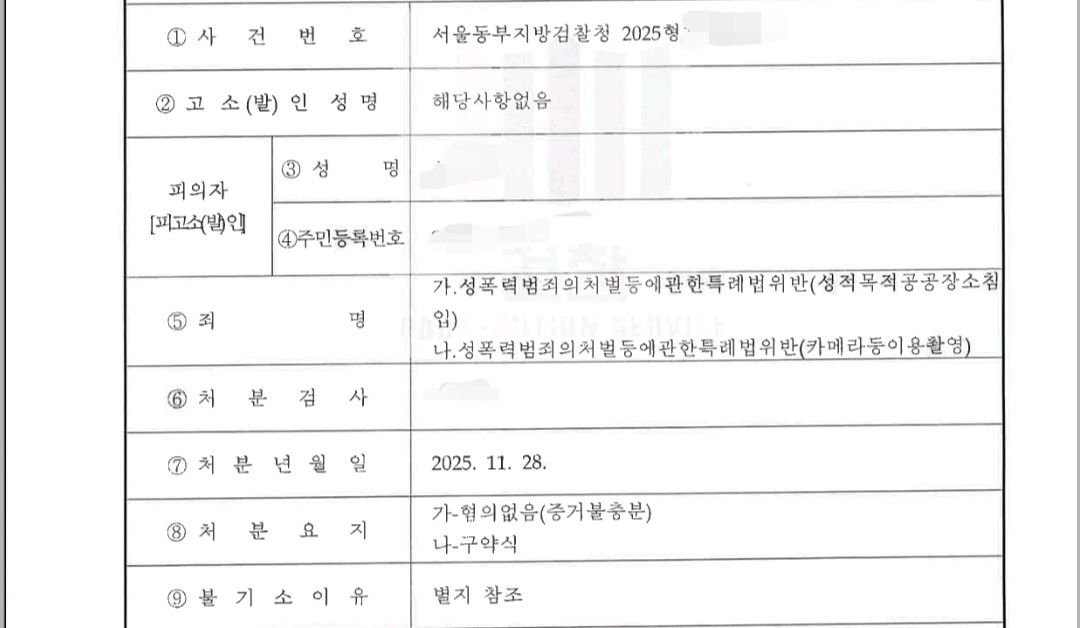 ① 사 건 번 호 서울동부지방검찰청 2025형
② 고 소(발) 인 성 명 해당사항없음
피의자
[피고소(발)인]
③ 성 명
④주민등록번호
⑤ 죄 명
가.성폭력범죄의처벌등에관한특례법위반(성적목적공공장소침
입)
나.성폭력범죄의처벌등에관한특례법위반(카메라등이용촬영)
⑥ 처 분 검 사
⑦ 처 분 년 월 일 2025. 11. 28.
⑧ 처 분 요 지
가-혐의없음(증거불충분)
나-구약식
⑨ 불 기 소 이 유 별지 참조